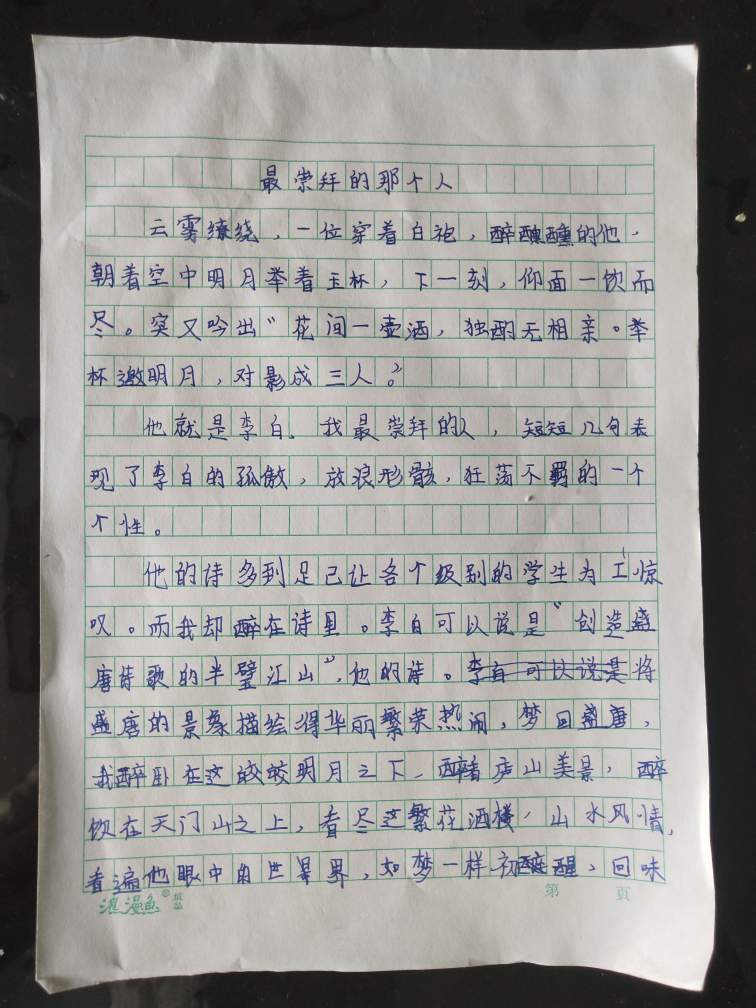 最崇拜的那个人
云雾缭绕，一位穿着白袍，醉醺醺的他，
朝着空中明月举着玉杯，下一刻，仰面一饮而
尽。突又吟出“花间一壶酒，独酌无相亲。举
杯邀明月，对影成三人。”
他就是李白，我最崇拜的人，短短几句表
现了李白的孤傲，放浪形骸，狂荡不羁的一个
个性。
他的诗多到足已让各个级别的学生为工惊
叹。而我却醉在诗里。李白可以说是“创造盛
唐诗歌的半璧江山”，他的诗。李白可以说是将
盛唐的景象描绘得华丽繁荣热闹，梦回盛唐，
我醉卧在这皎皎明月之下，醉着庐山美景，醉
饮在天门山之上，看尽这繁花酒楼，山水风情，
看遍他眼中的世界，如梦一样初醒，回味
第 页